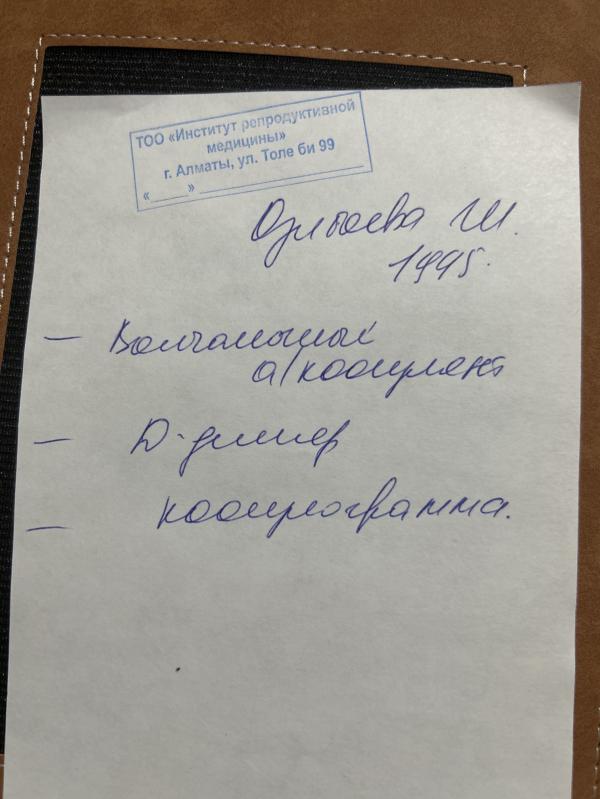 ТОО «Институт репродуктивной
медицины»
г. Алматы, ул. Толе би 99
«_____» ____________________
Ш.
1995.
— Волчаночный
а/коагулянт
— D-димер
— коагулограмма.